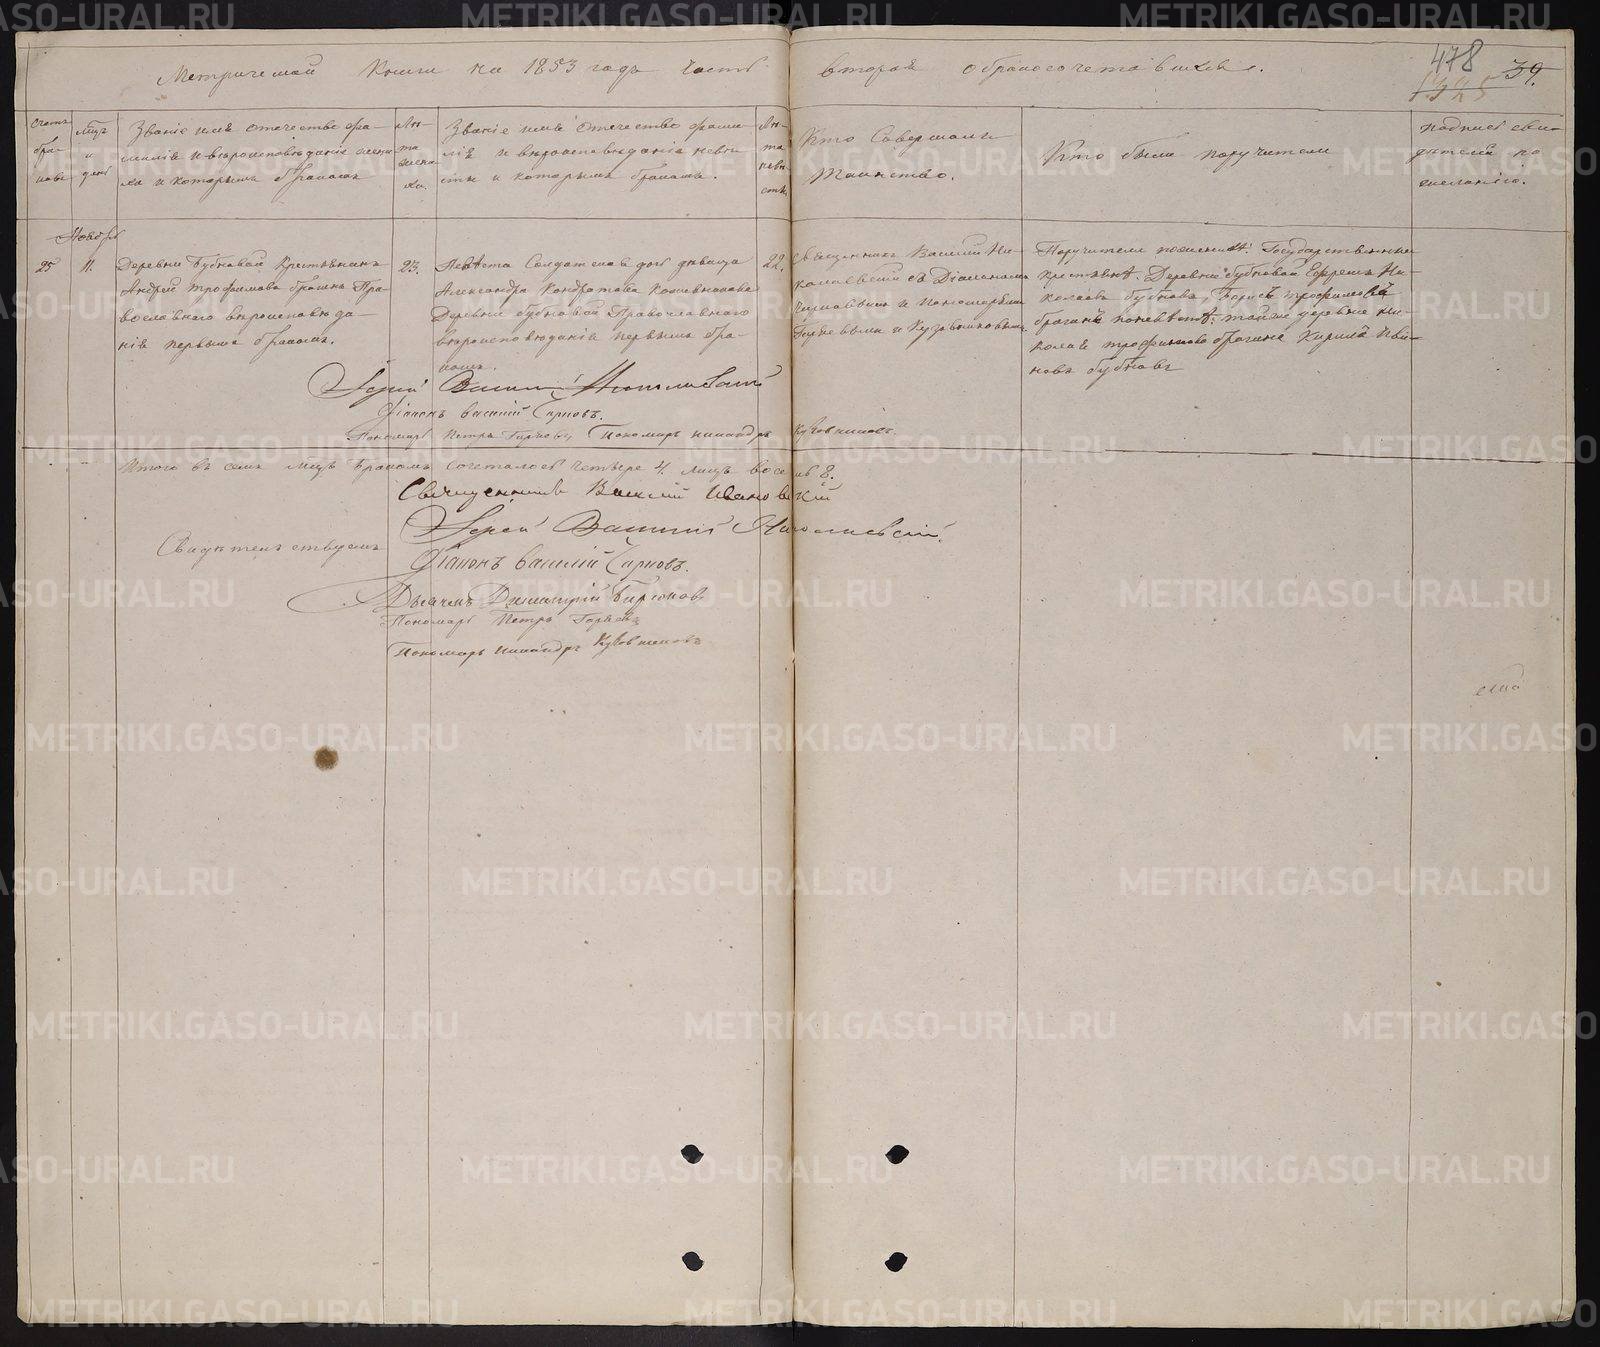 Метрической Книги на 1853 годъ Часть вторая о бракосочетавшихся.
478
1345
39.
Счетъ бра-
ковъ
Мцъ
и
день
Званіе имя отечество фа-
милія и вѣроисповѣданіе жени-
ха и которымъ бракомъ
Лѣ-
та
жени-
ха.
Званіе имя отечество фами-
лія и вѣроисповѣданіе невѣ-
сты и которымъ бракомъ.
Лѣ-
та
невѣ-
сты
Кто Совершалъ
Таинство.
Кто были поручители
подпись сви-
дѣтелей по
желанію.
Ноябрь
25
11.
Деревни Бубновой Крестьянинъ
Андрей Трофимовъ брагинъ Пра-
вославнаго вѣроисповѣда-
нія первымъ бракомъ.
23.
Невѣста Солдатская дочь дѣвица
Александра Кондратова
Деревни бубновой Православнаго
вѣроисповѣданія первымъ бра-
комъ.
22.
Священникъ Василій Ни-
колаевскій съ Діакономъ
и Пономарями
и Кузовниковымъ
Поручители по женихѣ Государственные
крестьяне Деревни бубновой Ефремъ Ни-
колаевъ бубновъ, Борисъ трофимовъ
брагинъ по невѣстѣ: тойже деревни Ни-
колай трофимовъ брагинъ Кирилъ Ива-
новъ бубновъ
Іерей Василій Николаевскій
Діаконъ Василій Чирковъ.
Пономарь Петръ Пономарь никандръ Кузовниковъ.
Итого въ семъ Мцѣ Бракомъ сочеталось четвере 4. лицъ восемь 8.
Священникъ Василій Ивановскій
Свидѣтельствуемъ
Іерей Василій Николаевскій.
Діаконъ Василій Чирковъ.
Дьячекъ Димитрій Бирюковъ
Пономарь Петръ
Пономарь никандръ Кузовниковъ
METRIKI.GASO-URAL.RU